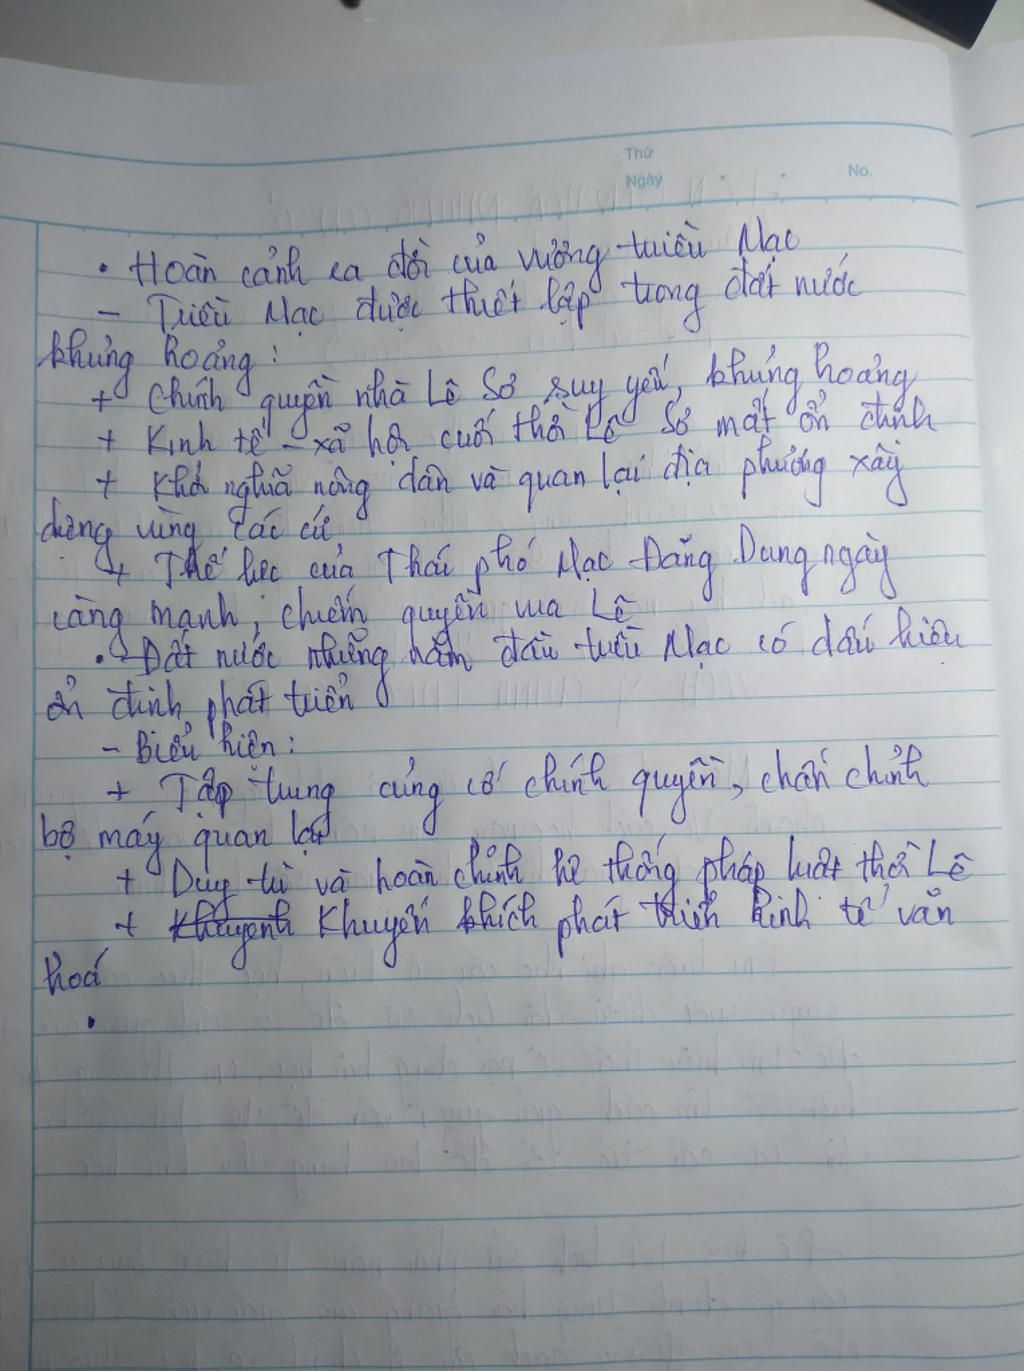 Thứ
Ngày
No.
• Hoàn cảnh ra đời của vương triều Mạc
- Triều Mạc được thiết lập trong đất nước
khủng hoảng :
+ Chính quyền nhà Lê Sơ suy yếu, khủng hoảng
+ Kinh tế - xã hội cuối thời Lê Sơ mất ổn định
+ Khởi nghĩa nông dân và quan lại địa phương xây
dựng vùng cát cứ
+ Thế lực của Thái phó Mạc Đăng Dung ngày
càng mạnh, chiếm quyền vua Lê
• Đất nước những năm đầu triều Mạc có dấu hiệu
ổn định phát triển
- Biểu hiện :
+ Tập trung củng cố chính quyền, chấn chỉnh
bộ máy quan lại
+ Duy trì và hoàn chỉnh hệ thống pháp luật thời Lê
+ Khuyến khích phát triển kinh tế văn
hoá
•